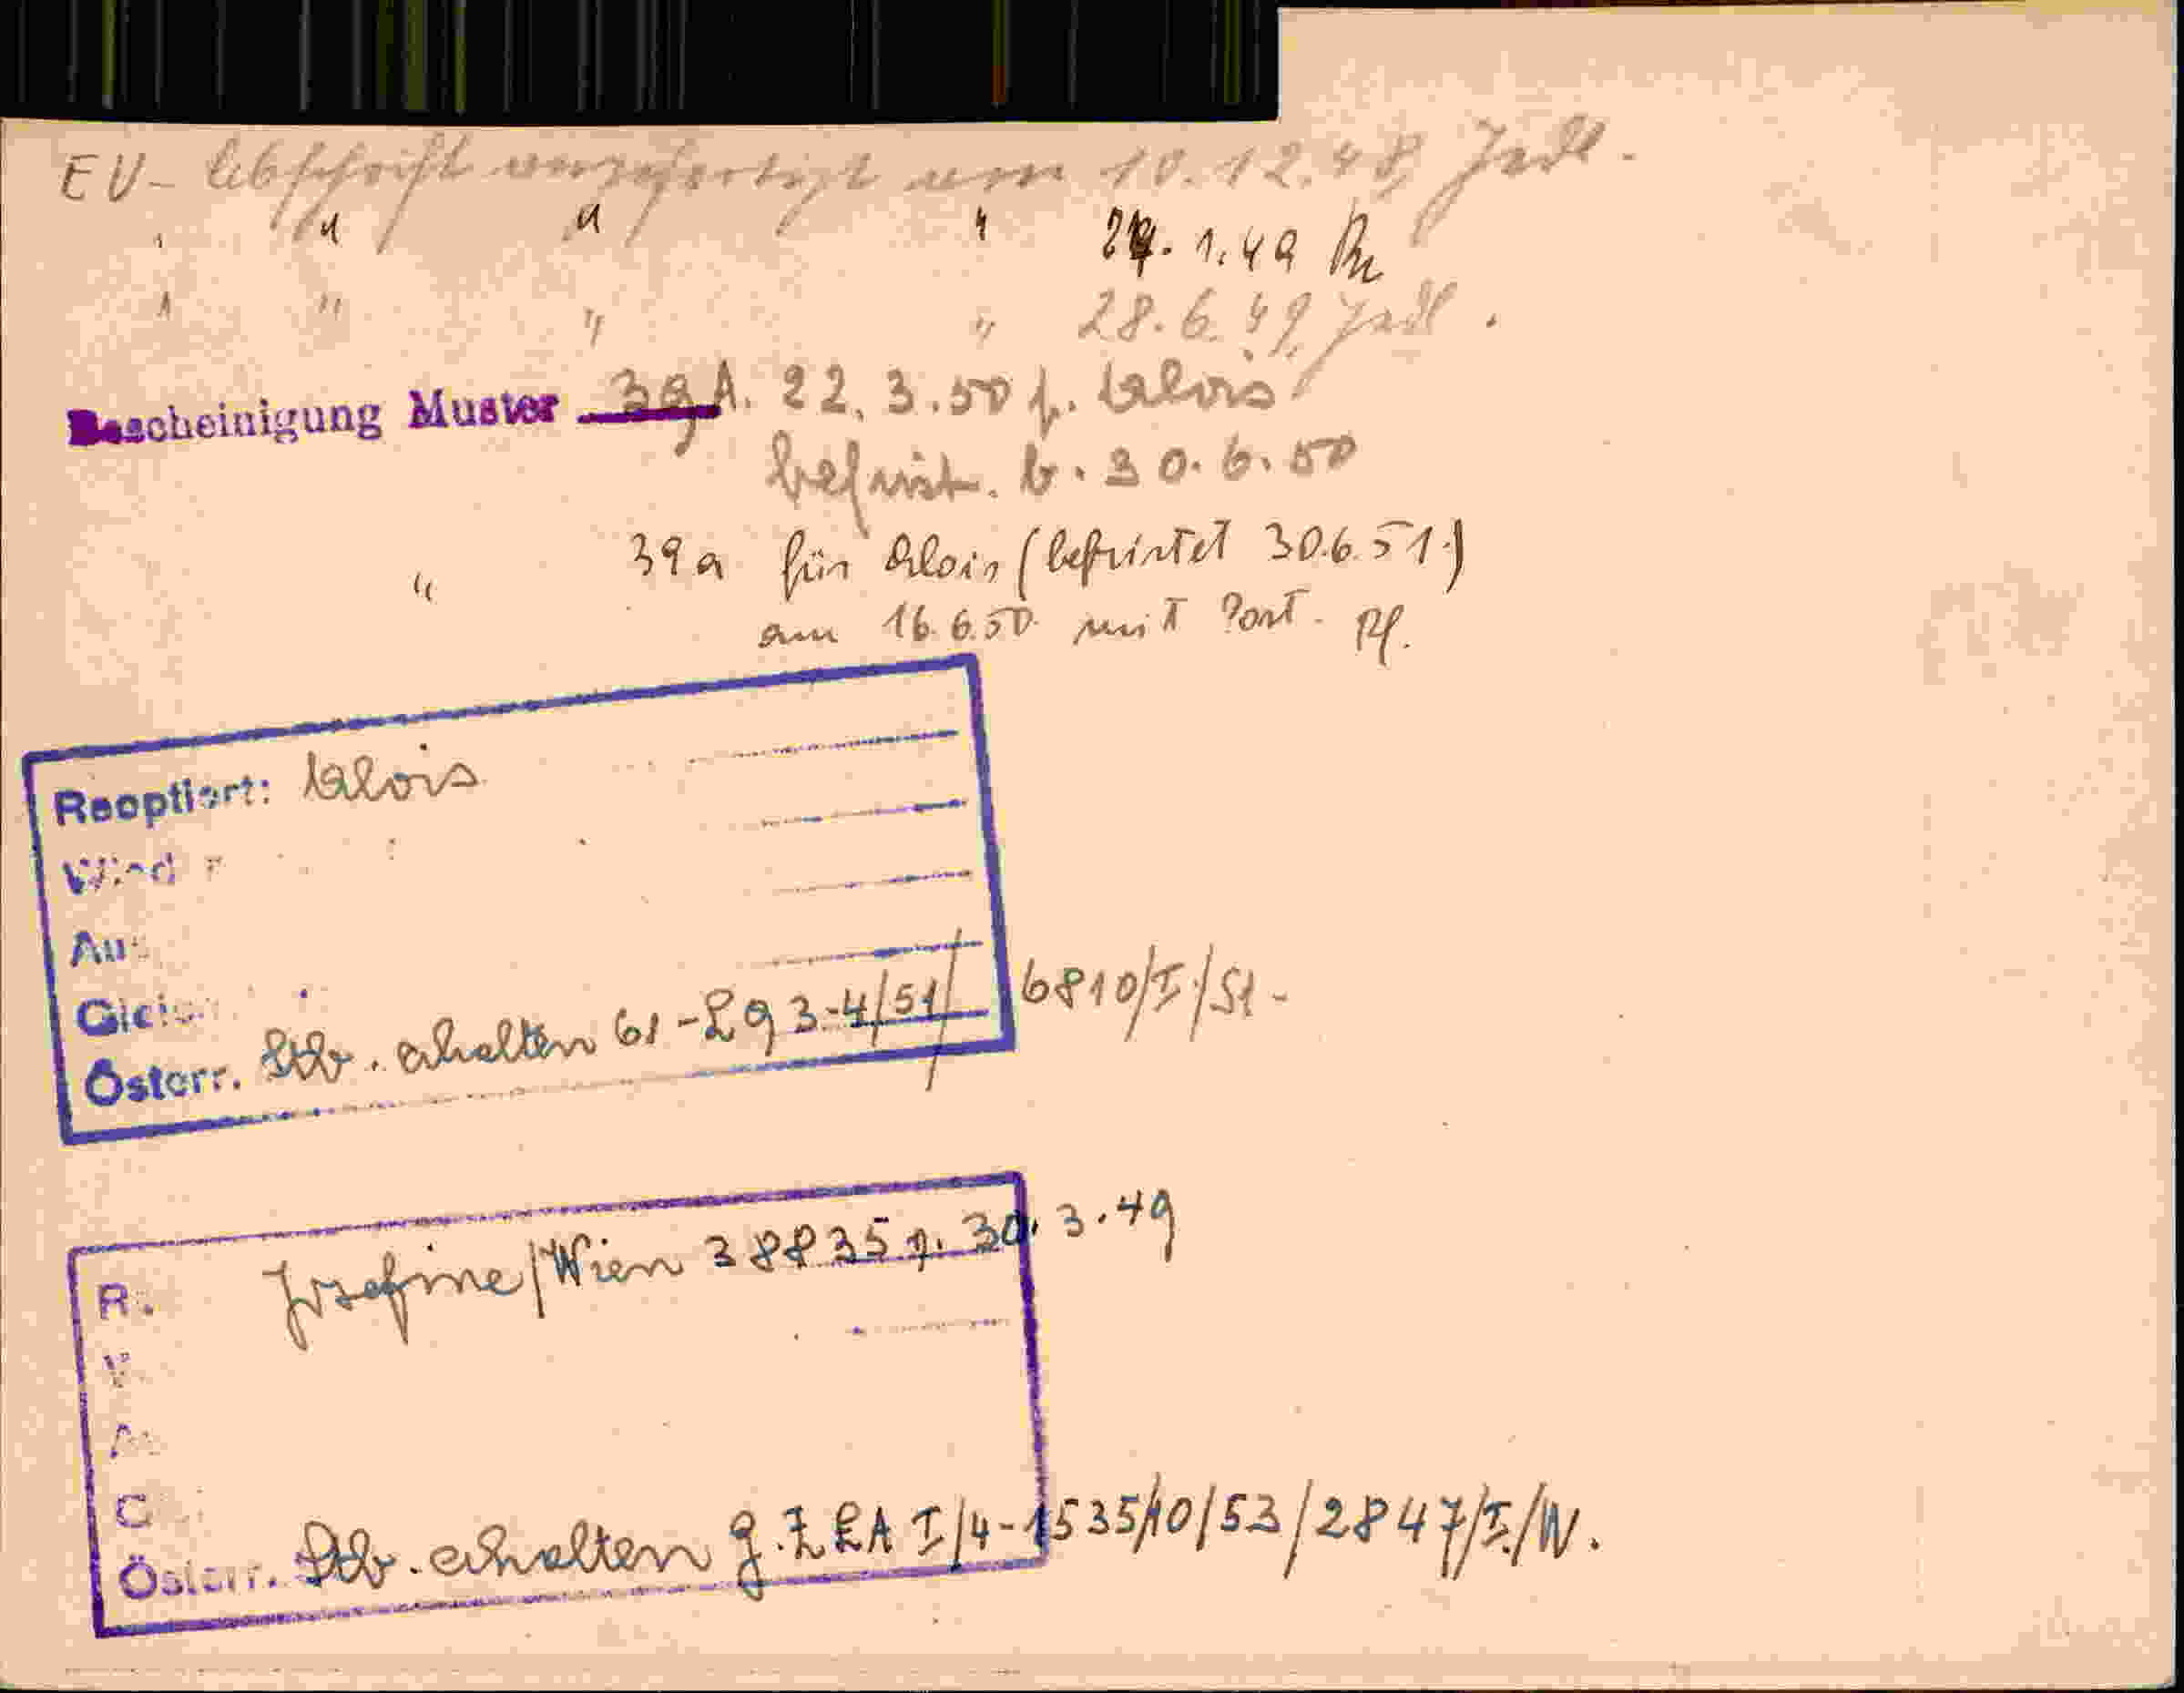 EU- Abschrift ausgefertigt am 10.12.48
" " " " 27. 1.49
" " " " 28.6.49
Bescheinigung Muster 39A. 22.3.50 f. Alois
befrist. b. 30.6.50
" 39a für Alois (befristet 30.6.51.)
am 16.6.50 mit Post. Pf.
Reoptiert: Alois
Österr. Stb. erhalten 61-293-4/51/ 6810/I/51-
R. Josefine/Wien 38835 v. 30.3.49
Österr. Stb. erhalten g.Z. LA I/4-1535/10/53/2847/I/W.